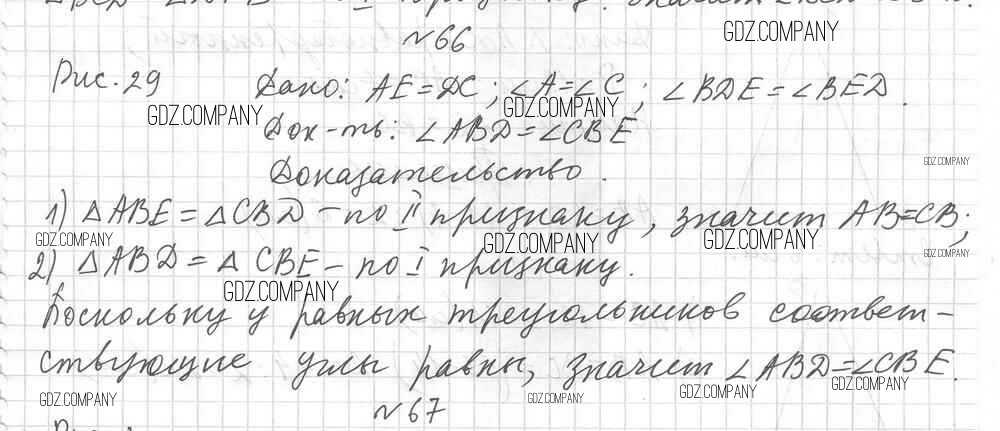 №66
GDZ.COMPANY
Рис. 29 Дано: AE = DC; ∠A = ∠C; ∠BDE = ∠BED.
GDZ.COMPANY GDZ.COMPANY
Док-ть: ∠ABD = ∠CBE
Доказательство.
GDZ.COMPANY
1) △ABE = △CBD – по II признаку, значит AB = CB;
GDZ.COMPANY GDZ.COMPANY GDZ.COMPANY GDZ.COMPANY
2) △ABD = △CBE – по I признаку.
GDZ.COMPANY
Поскольку у равных треугольников соответ-
ствующие углы равны, значит ∠ABD = ∠CBE.
GDZ.COMPANY GDZ.COMPANY GDZ.COMPANY GDZ.COMPANY
№67